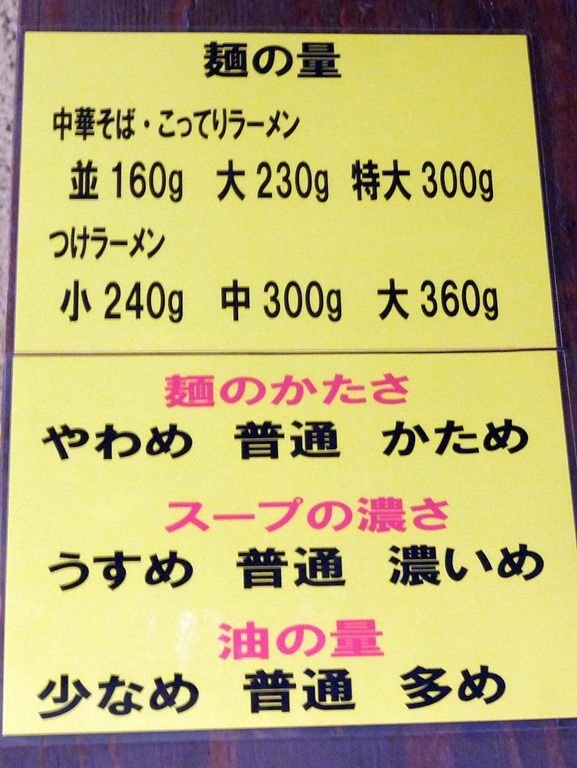 麺の量
中華そば・こってりラーメン
並160g 大230g 特大300g
つけラーメン
小240g 中300g 大360g
麺のかたさ
やわめ 普通 かため
スープの濃さ
うすめ 普通 濃いめ
油の量
少なめ 普通 多め